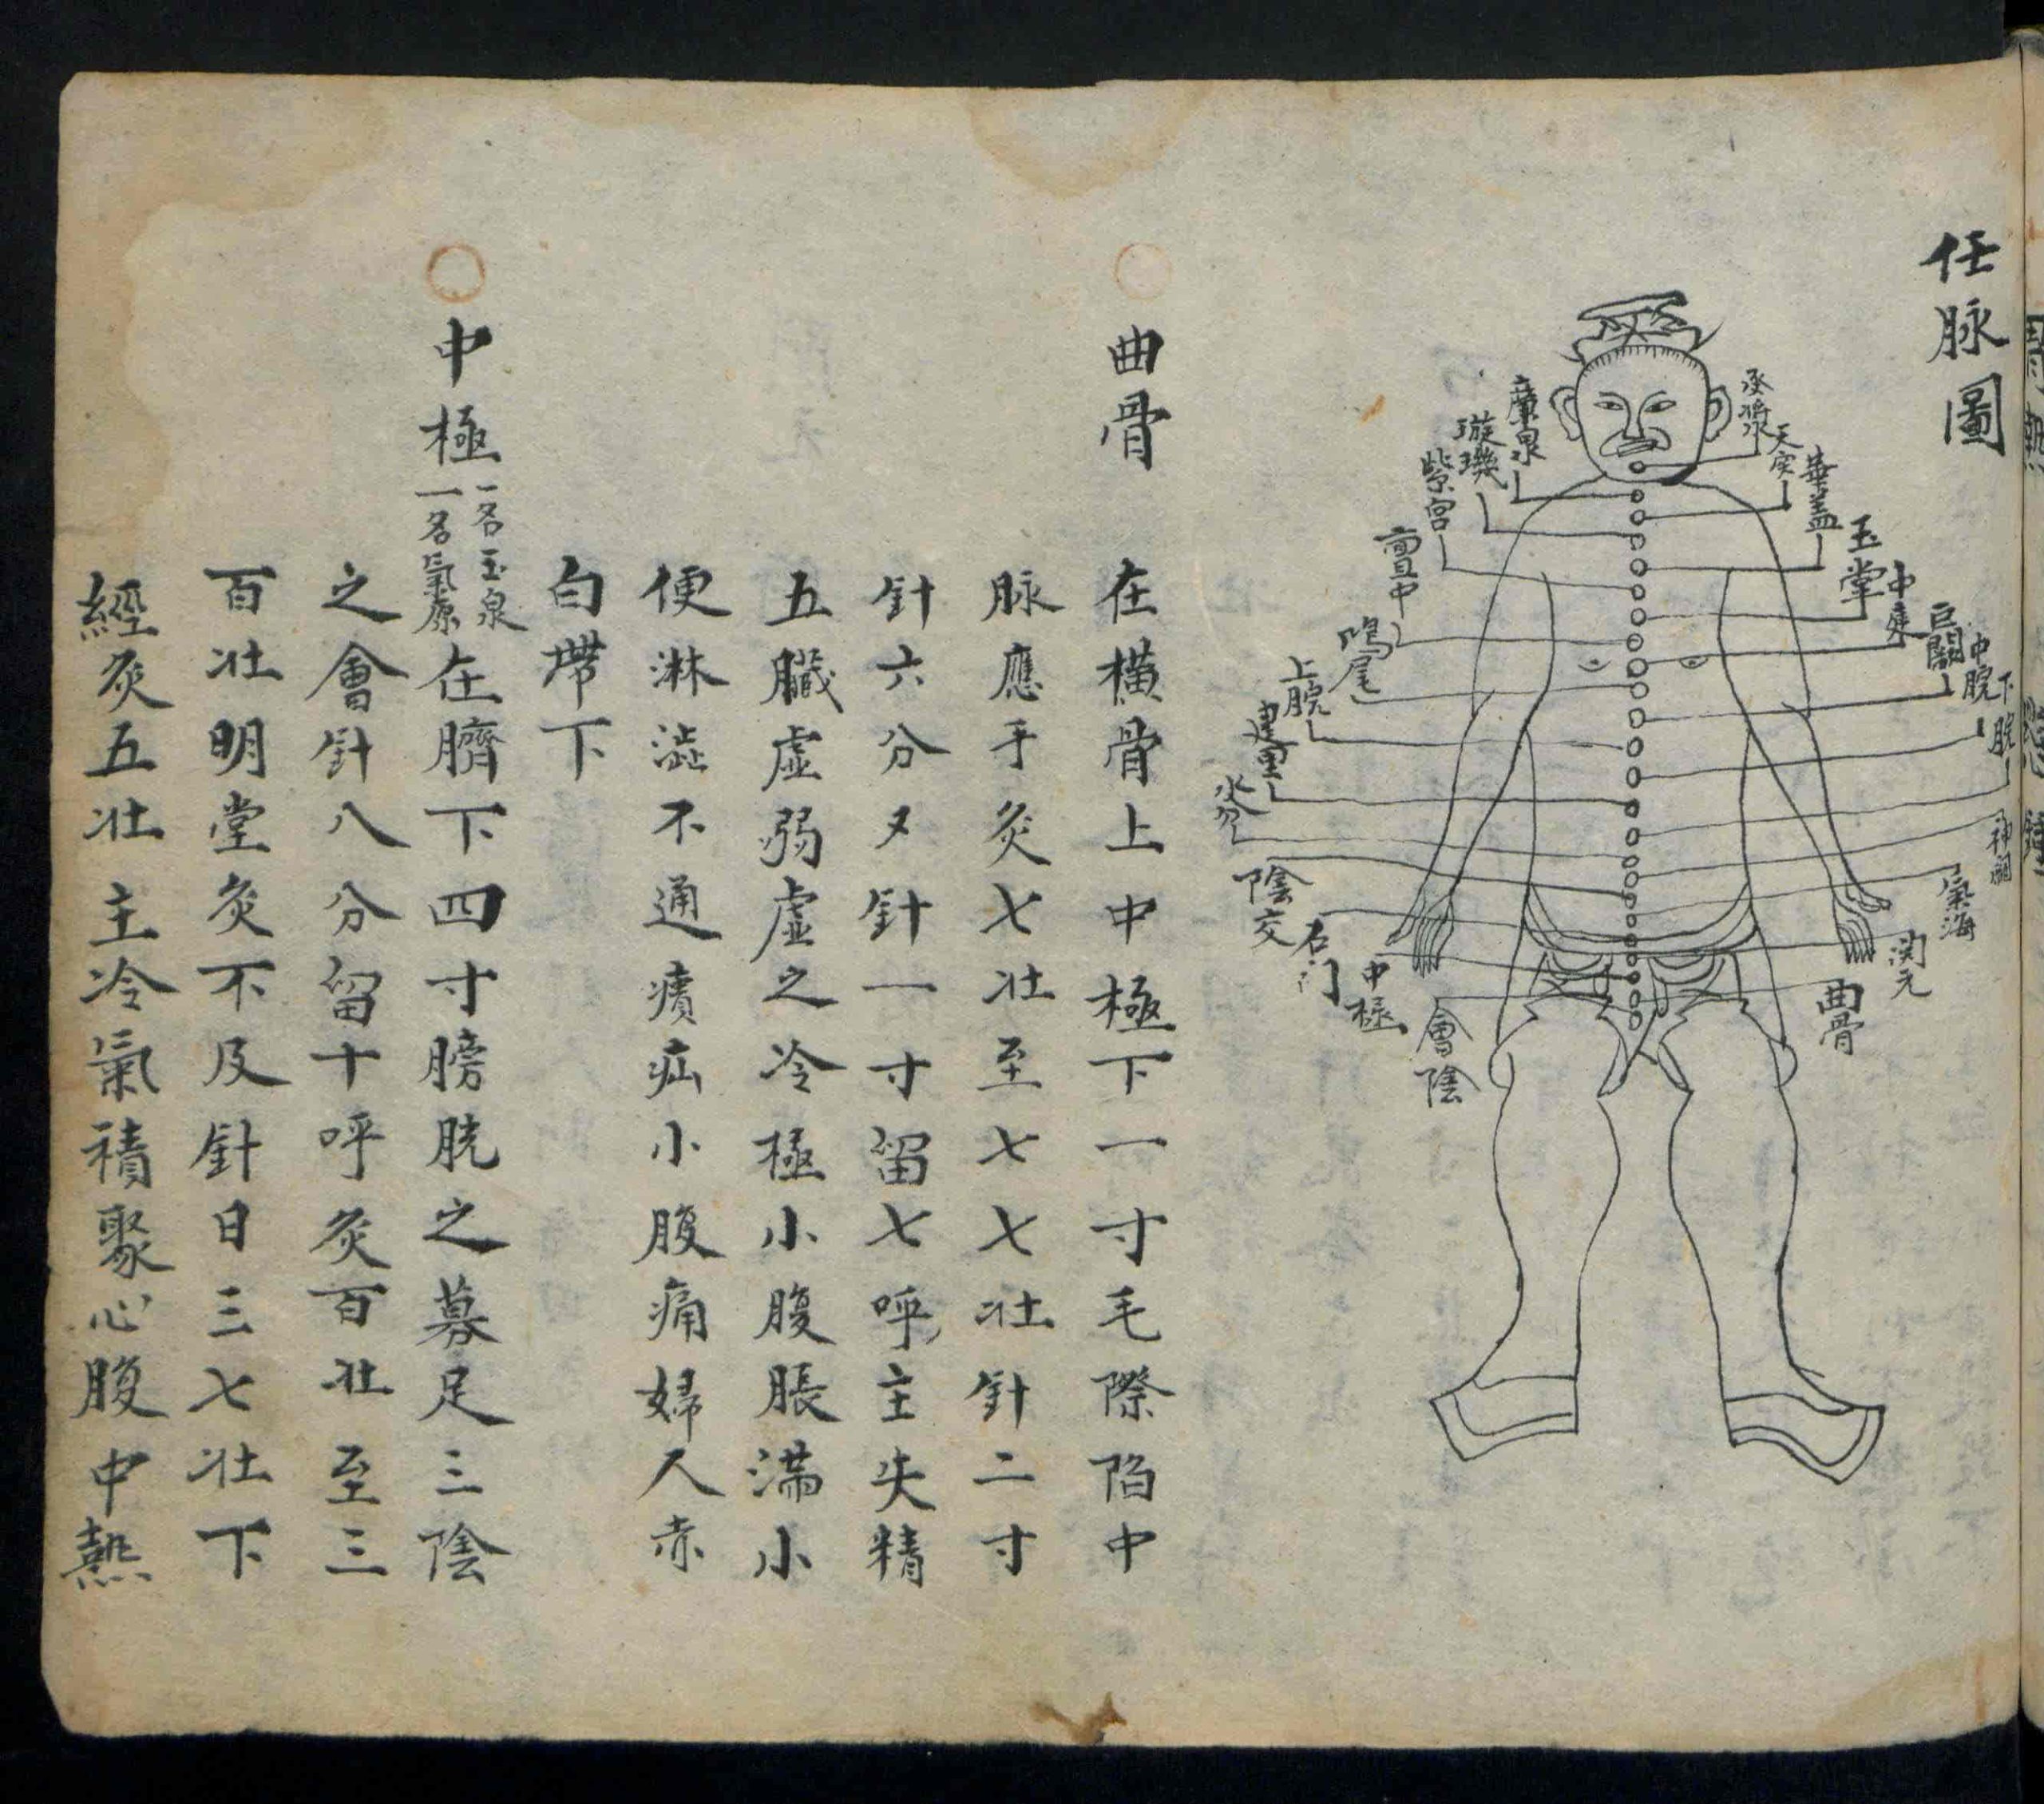 任脉圖
承漿
天突
華盖
玉堂
中庭
巨闕
中脘
下脘
神闕
氣海
関元
曲骨
廉泉
璇璣
紫宮
亶中
鳩尾
上脘
建里
水分
陰交
石门
中極
會陰
曲骨
在橫骨上中極下一寸毛際陷中
脉應手灸七壯至七七壯針二寸
針六分又針一寸留七呼主失精
五臟虛弱虛之冷極小腹脹滿小
便淋澁不通㿉疝小腹痛婦人赤
白帶下
中極 一名玉泉 一名氣原 在臍下四寸膀胱之募足三陰
之會針八分留十呼灸百壯至三
百壯明堂灸不及針日三七壯下
經灸五壯主冷氣積聚心腹中熱